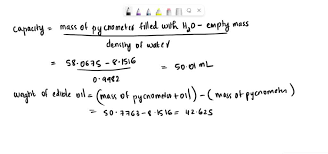 capacity = mass of pycnometer filled with H2O - empty mass
density of water
= 58.0675 - 8.1516 = 50.01 mL
0.9982
weight of edible oil = (mass of pycnometer + oil) - (mass of pycnometer)
= 50.7763 - 8.1516 = 42.625